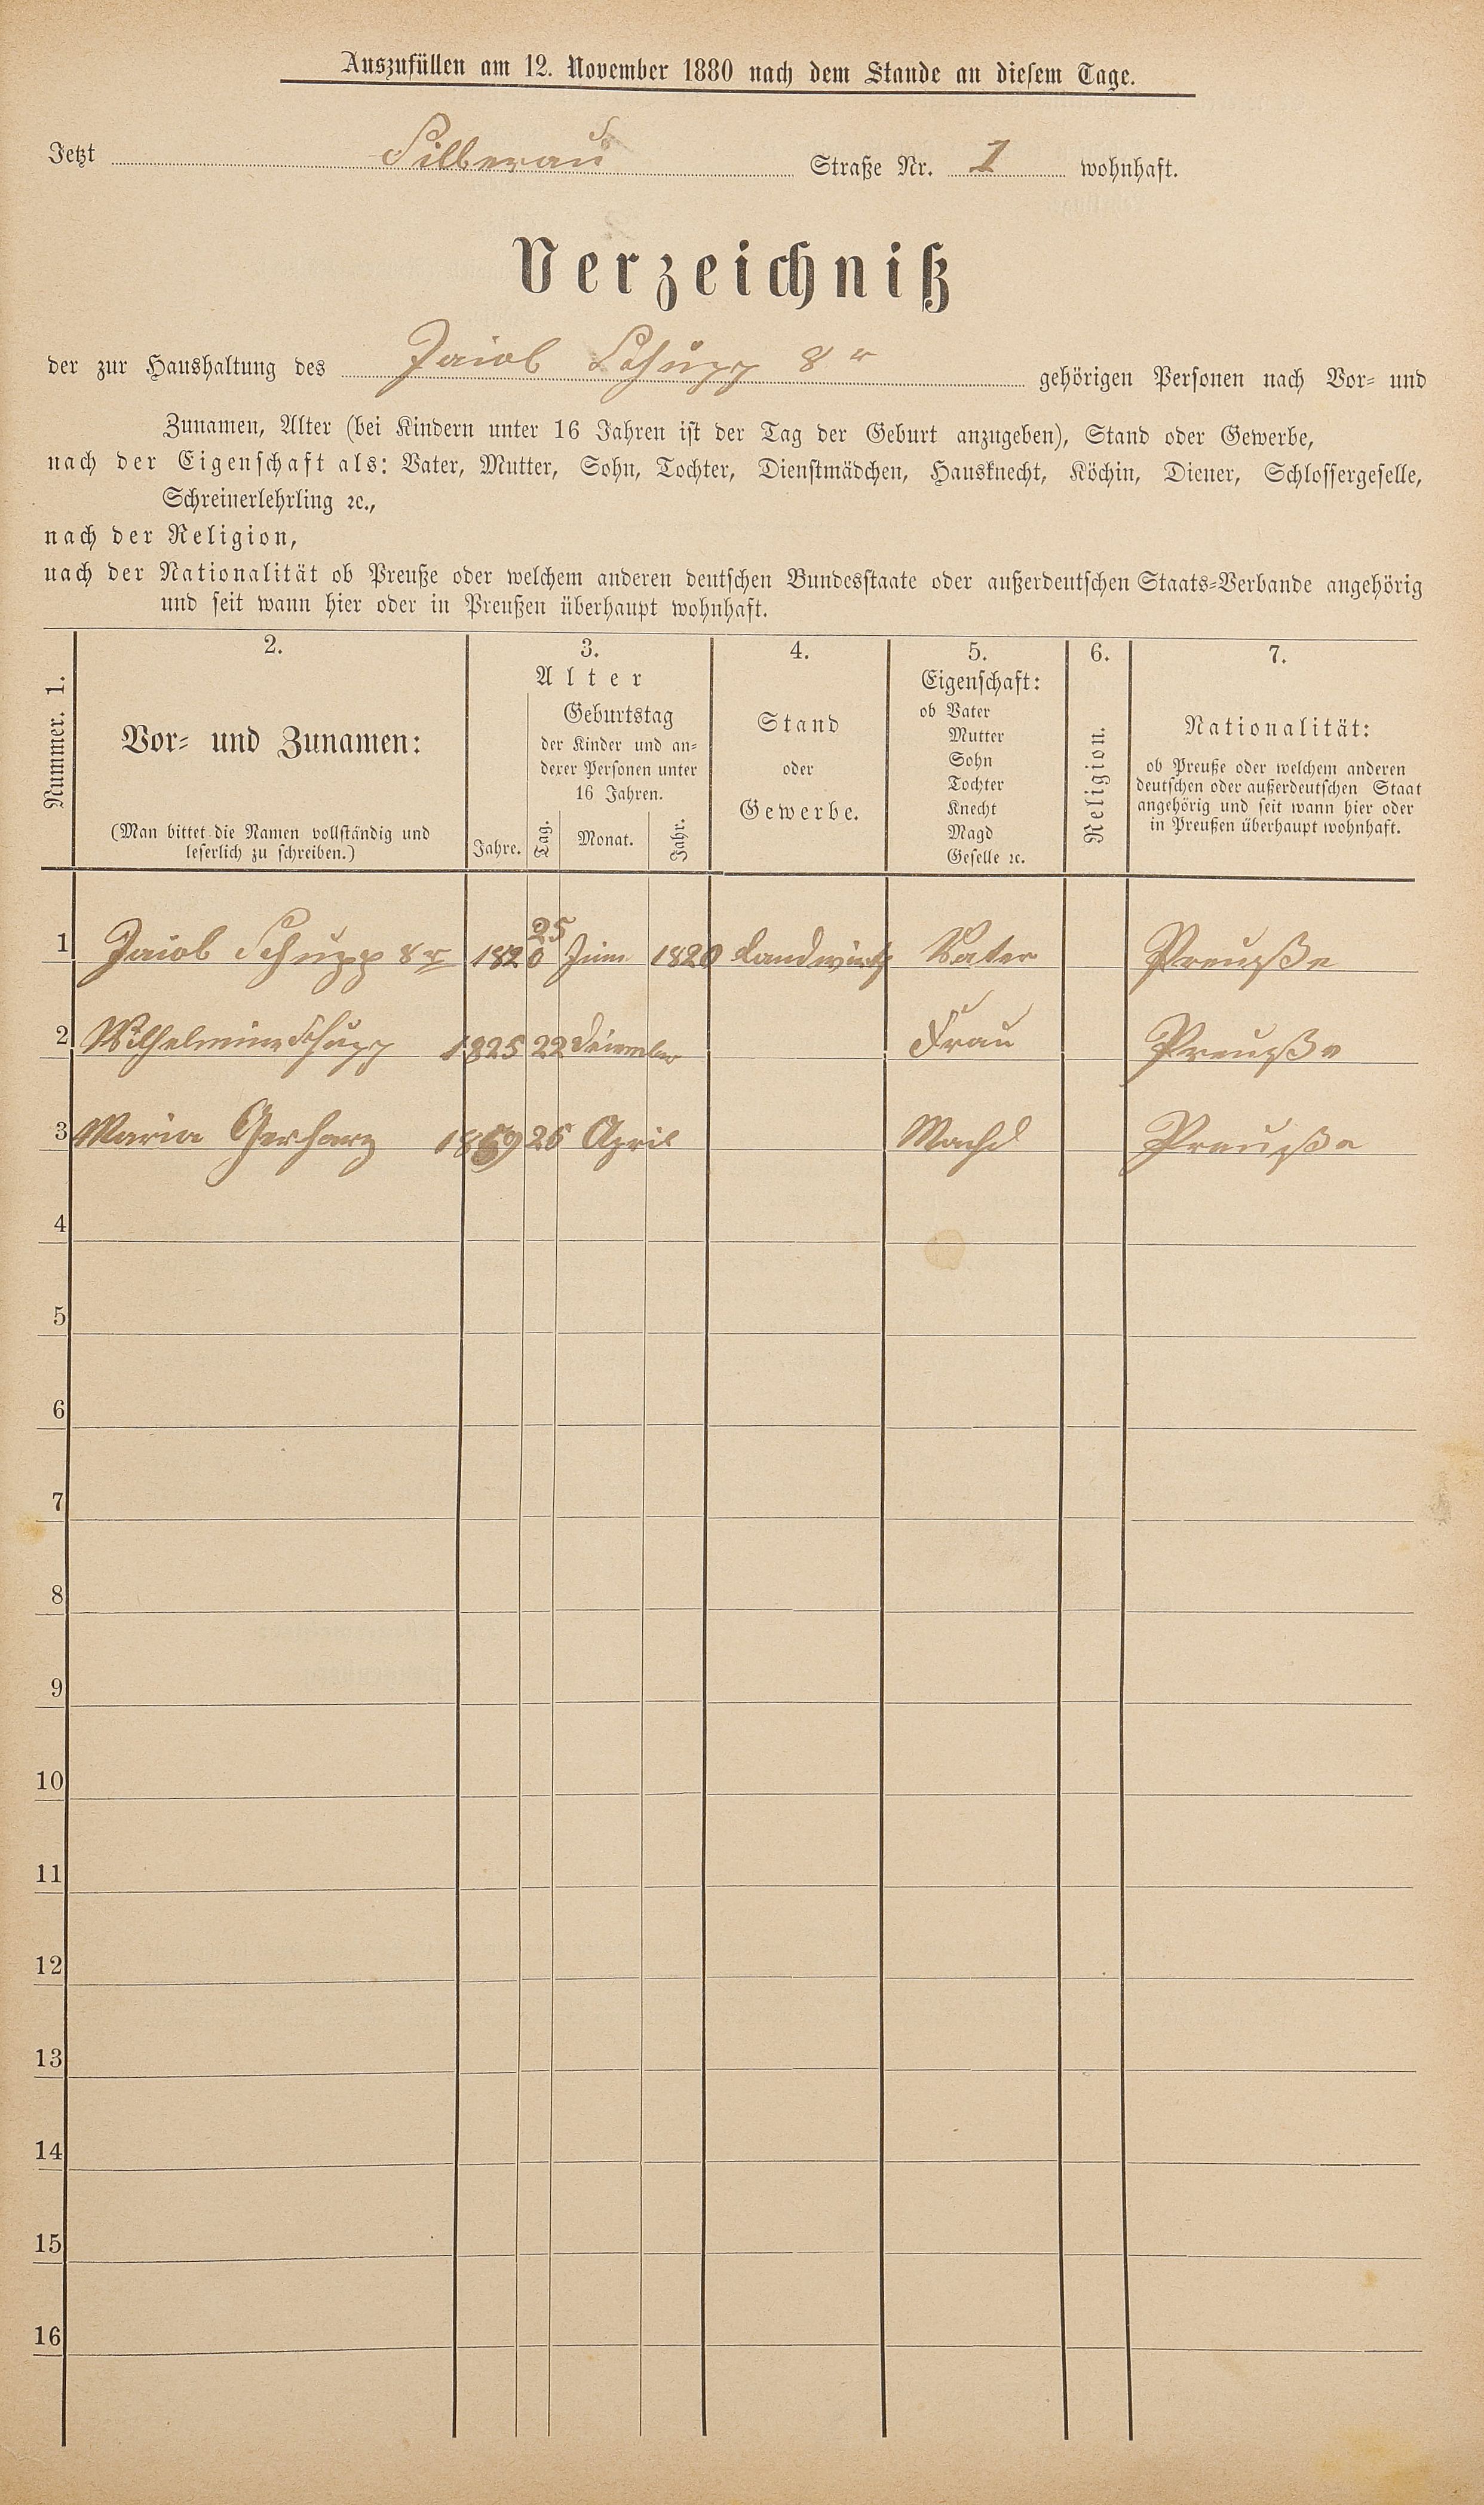 Auszufüllen am 12. November 1880 nach dem Stande an diesem Tage.
Jetzt Silberau Straße Nr. 1 wohnhaft.
Verzeichniß
der zur Haushaltung des Jacob Schupp 8r gehörigen Personen nach Vor- und
Zunamen, Alter (bei Kindern unter 16 Jahren ist der Tag der Geburt anzugeben), Stand oder Gewerbe,
nach der Eigenschaft als: Vater, Mutter, Sohn, Tochter, Dienstmädchen, Hausknecht, Köchin, Diener, Schlossergeselle,
Schreinerlehrling ꝛc.,
nach der Religion,
nach der Nationalität ob Preuße oder welchem anderen deutschen Bundesstaate oder außerdeutschen Staats-Verbande angehörig
und seit wann hier oder in Preußen überhaupt wohnhaft.
Nummer. 1.
2.
Vor- und Zunamen:
(Man bittet die Namen vollständig und
leserlich zu schreiben.)
3.
Alter
Jahre.
Geburtstag
der Kinder und an-
derer Personen unter
16 Jahren.
Tag. Monat. Jahr.
4.
Stand
oder
Gewerbe.
5.
Eigenschaft:
ob Vater
Mutter
Sohn
Tochter
Knecht
Magd
Geselle ꝛc.
6.
Religion.
7.
Nationalität:
ob Preuße oder welchem anderen
deutschen oder außerdeutschen Staat
angehörig und seit wann hier oder
in Preußen überhaupt wohnhaft.
1 Jacob Schupp 8r 1820 25 Juni 1820 Landwirth Vater Preuße
2 Wilhelmine Schupp 1825 22 December Frau Preuße
3 Maria Gerharz 26 April Machd Preuße
4
5
6
7
8
9
10
11
12
13
14
15
16